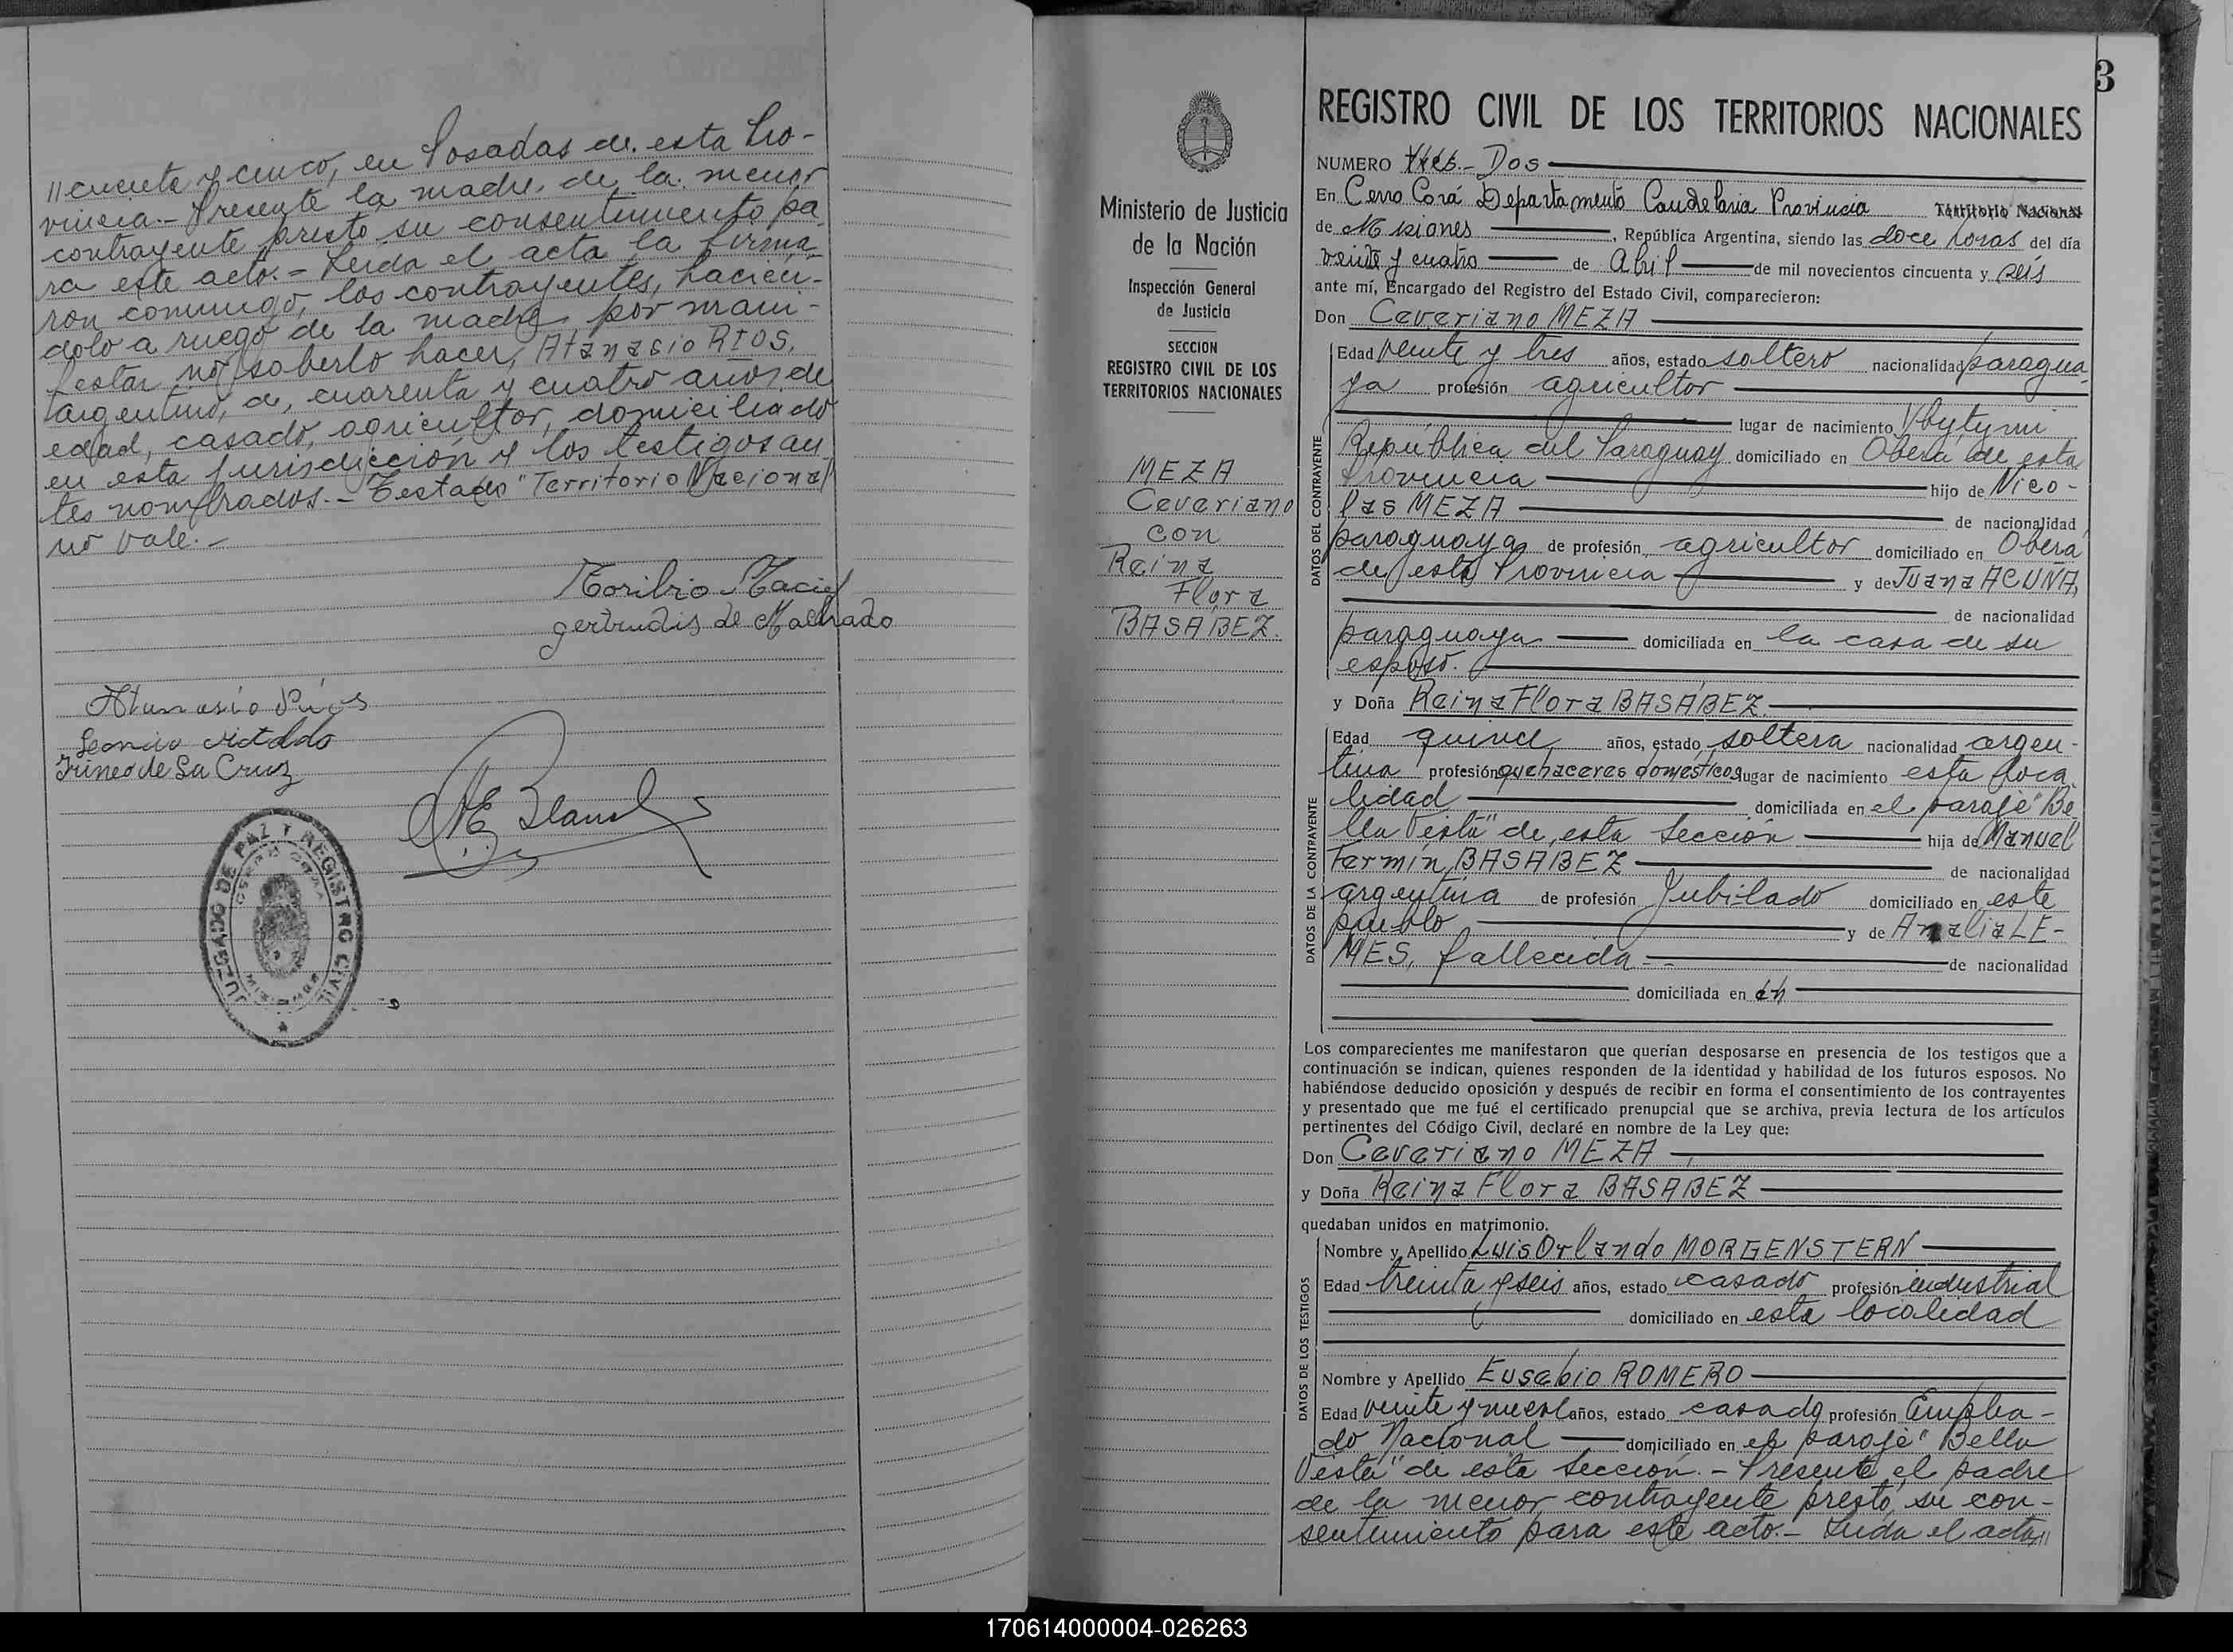 //cuenta y cinco, en Posadas de esta Pro-
vincia.- Presente la madre de la menor
contrayente prestó su consentimiento pa
ra este acto.- Leída el acta la firma-
ron conmigo, los contrayentes, hacien-
dolo a ruego de la madre, por mani-
festar no saberlo hacer, Atanasio RIOS,
argentino, de cuarenta y cuatro años de
edad, casado, agricultor, domiciliado
en esta jurisdicción y los testigos an
tes nombrados.- Testado "Territorio Nacional"
no vale.-
Toribio Maciel
gertrudis de Machado
Atanasio Rios
Irineo de La Cruz
JUZGADO DE PAZ Y REGISTRO CIVIL
CERRO CORA
MISIONES
3
Ministerio de Justicia
de la Nación
Inspección General
de Justicia
SECCION
REGISTRO CIVIL DE LOS
TERRITORIOS NACIONALES
MEZA
Ceveriano
con
Reina
Flora
BASABEZ.
REGISTRO CIVIL DE LOS TERRITORIOS NACIONALES
NUMERO Tres.- Dos
En Cerro Corá Departamento Candelaria Provincia Territorio Nacional
de Misiones, República Argentina, siendo las doce horas del día
veinte y cuatro de Abril de mil novecientos cincuenta y seis
ante mí, Encargado del Registro del Estado Civil, comparecieron:
Don Ceveriano MEZA
DATOS DEL CONTRAYENTE
Edad veinte y tres años, estado soltero nacionalidad paragua-
ya profesión agricultor
lugar de nacimiento Ybytymi
República del Paraguay domiciliado en Oberá de esta
Provincia hijo de Nico-
las MEZA de nacionalidad
paraguaya de profesión agricultor domiciliado en Oberá
de esta Provincia y de Juana ACUÑA,
de nacionalidad
paraguaya domiciliada en la casa de su
esposo.
y Doña Reina Flora BASABEZ.
DATOS DE LA CONTRAYENTE
Edad quince años, estado soltera nacionalidad argen-
tina profesión quehaceres domesticos lugar de nacimiento esta loca
lidad domiciliada en el paraje "Be
lla Vista" de esta Sección hija de Manuel
Fermín BASABEZ de nacionalidad
argentina de profesión Jubilado domiciliado en este
pueblo y de Analia LE-
MES, fallecida.- de nacionalidad
domiciliada en
Los comparecientes me manifestaron que querían desposarse en presencia de los testigos que a
continuación se indican, quienes responden de la identidad y habilidad de los futuros esposos. No
habiéndose deducido oposición y después de recibir en forma el consentimiento de los contrayentes
y presentado que me fué el certificado prenupcial que se archiva, previa lectura de los artículos
pertinentes del Código Civil, declaré en nombre de la Ley que:
Don Ceveriano MEZA
y Doña Reina Flora BASABEZ
quedaban unidos en matrimonio.
DATOS DE LOS TESTIGOS
Nombre y Apellido Luis Orlando MORGENSTERN
Edad treinta y seis años, estado casado profesión industrial
domiciliado en esta localidad
Nombre y Apellido Eusebio ROMERO
Edad veinte y nueve años, estado casado profesión Emplea-
do Nacional domiciliado en el paraje "Bella
Vista" de esta Sección.- Presente el padre
de la menor contrayente prestó su con-
sentimiento para este acto.- Leída el acta//
170614000004-026263